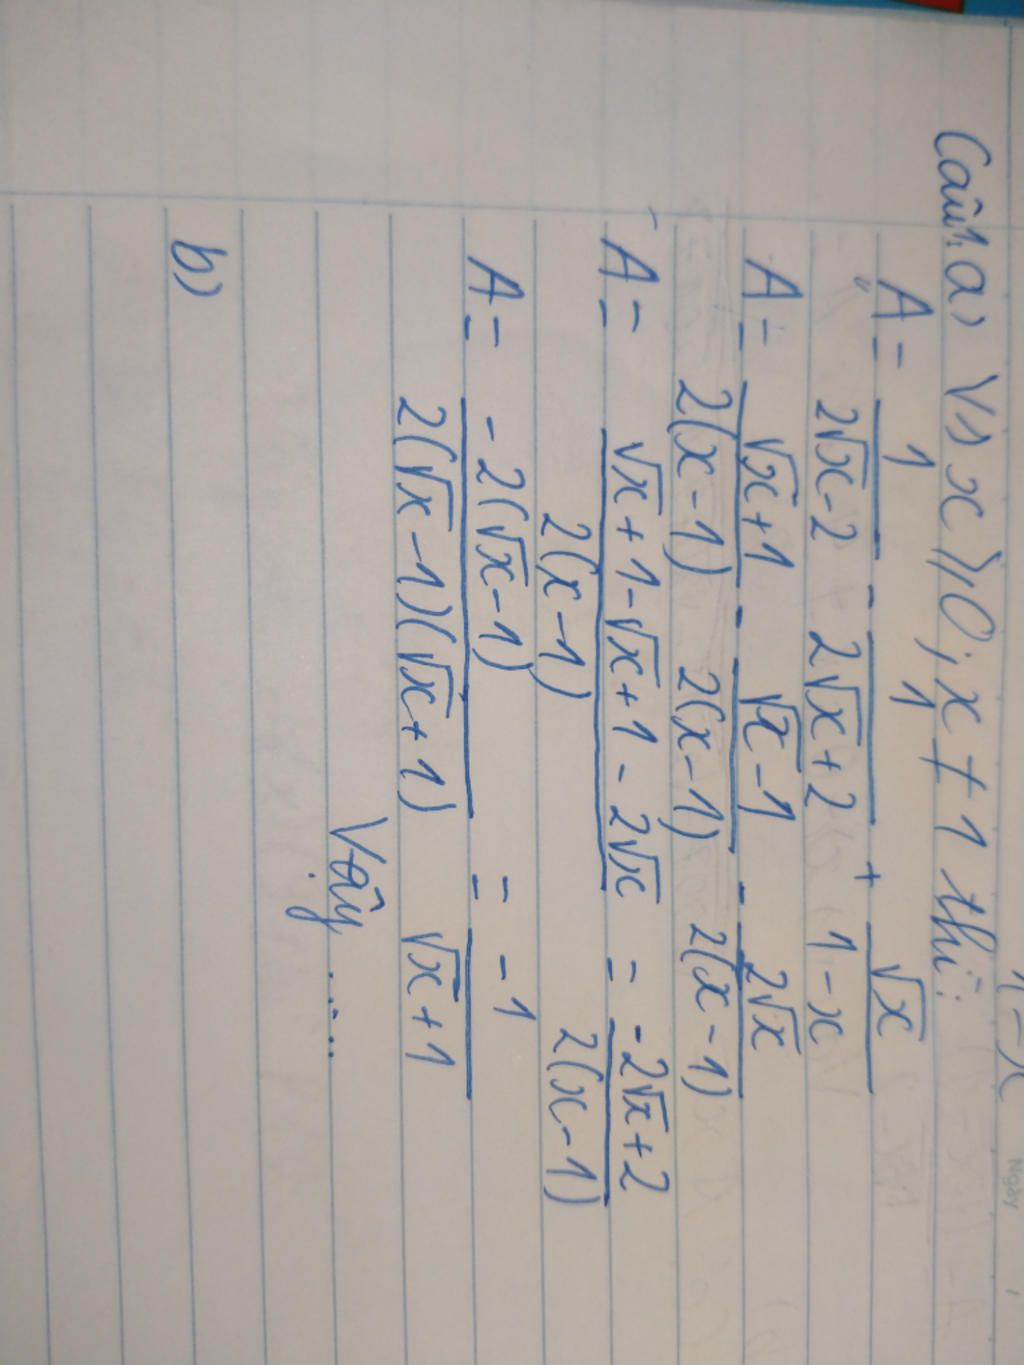 1-x
Ngày
Câu 1. a) Vs x ⩾ 0; x ≠ 1 thì:
A = 1/(2√x-2) - 1/(2√x+2) + √x/(1-x)
A = (√x+1)/(2(x-1)) - (√x-1)/(2(x-1)) - 2√x/(2(x-1))
A = (√x+1-√x+1-2√x)/(2(x-1)) = (-2√x+2)/(2(x-1))
A = -2(√x-1)/(2(√x-1)(√x+1)) = -1/(√x+1)
Vậy .....
b)